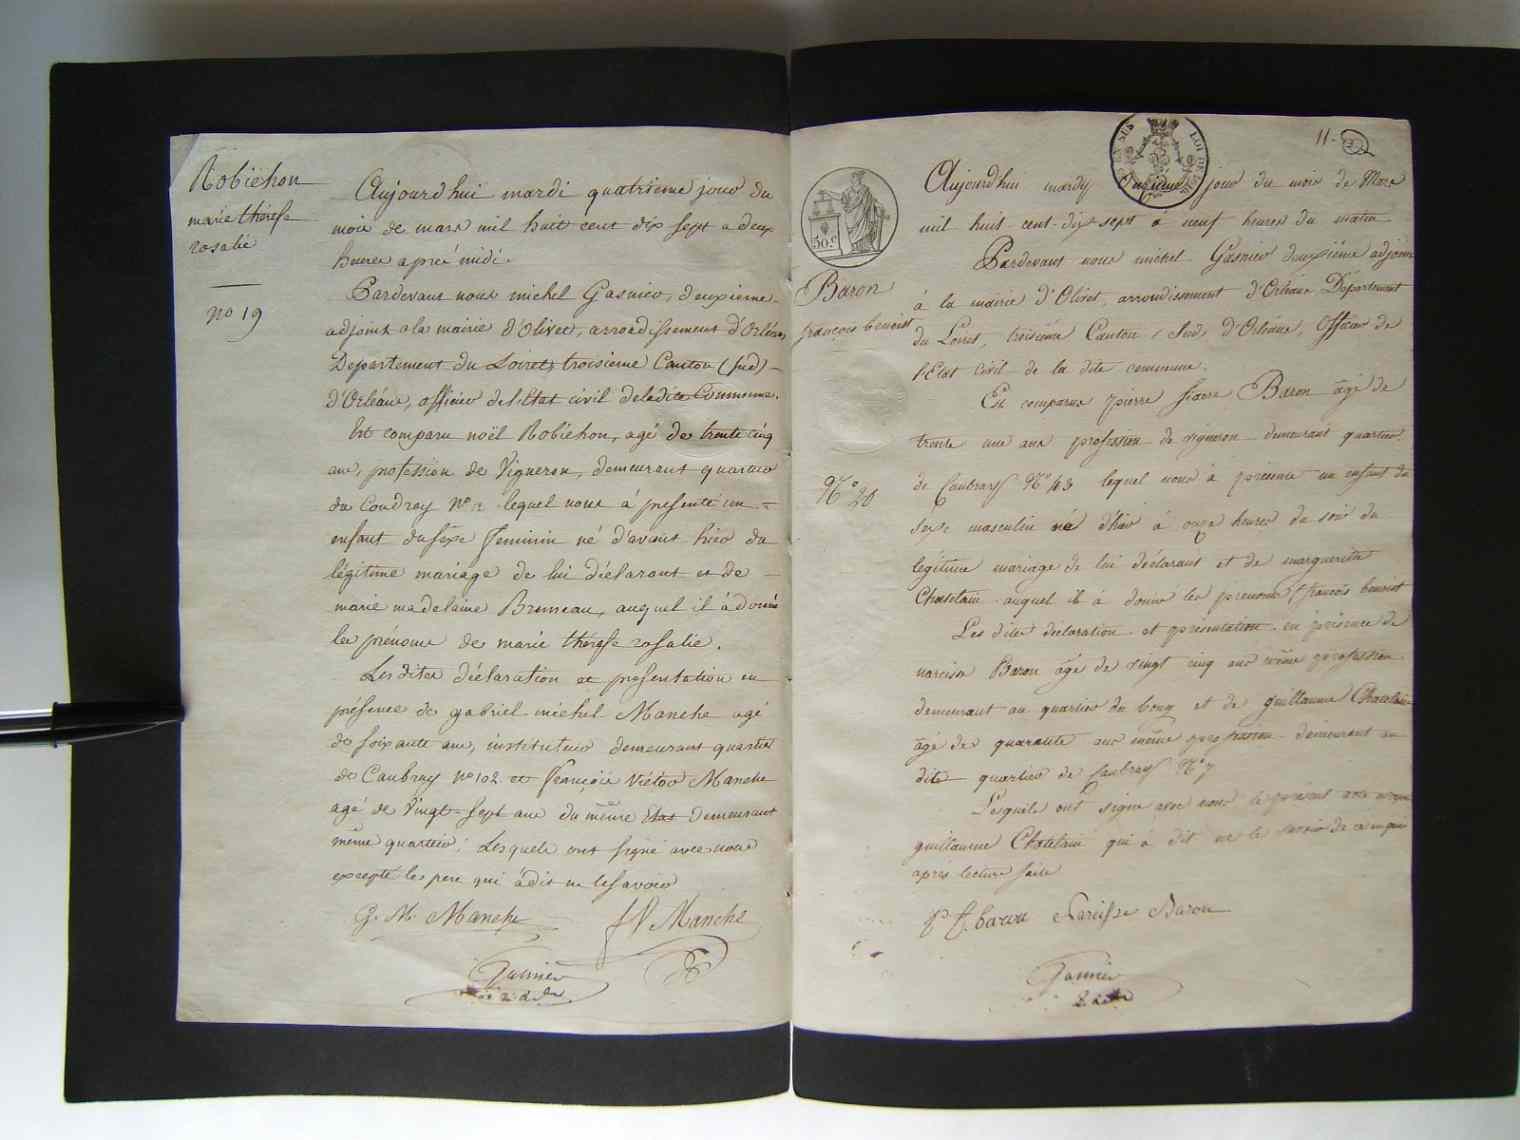 Robichon
marie thérese
rosalie
no 19
Aujourd'hui mardi quatrieme jour du
mois de mars mil huit cent dix sept a deux
heures aprés midi.
Pardevant nous michel Gasnier, deuxieme
adjoint a la mairie d'Olivet, arrondissement d'Orléans
Departement du Loiret, troisieme Canton (sud)
d'Orléans, officier de l'Etat civil de la dite Commune.
Est comparu noël Robichon, agé de trente cinq
ans, profession de Vigneron, demeurant quartier
du Coudray no lequel nous á presenté un
enfant du sexe feminin né d'avant hier du
légitime mariage de lui déclarant et de
marie madelaine Bruneau, auquel il à donné
les prénoms de marie thérese rosalie.
Les dites déclaration et presentation en
présence de gabriel michel Manche agé
de soixante ans, instituteur demeurant quartier
de Caubray no 102 et françois Victor Manche
agé de Vingt-sept ans du même Etat demeurant
même quartier. Lesquels ont signé avec nous
excepté le pere qui à dit ne le savoir
G. M. Manche
fV Manche
Gasnier
Baron
françois benoist
No 20
50 c
EN SUS
LOI DE
11.
Aujourd'hui mardy jour du mois de Mars
mil huit-cent-dix-sept á neuf heures du matin
Pardevant nous michel Gasnier deuxiéme adjoint
à la mairie d'Olivet, arrondissement d'Orléans Département
du Loiret, troisiéme Canton, Sud, d'Orléans, Officier de
l'Etat civil de la dite commune.
Est comparu pierre Baron agé de
trente une ans profession de vigneron demeurant quartier
de Caubray No 43 lequel nous à présenté un enfant du
sexe masculin né d'hier à onze heures du soir du
légitime mariage de lui déclarant et de marguerite
Chatelain auquel il à donné les prenoms françois benoist
Les dites declaration et présentation en présence de
narcisse Baron agé de vingt cinq ans même profession
demeurant au quartier du bourg et de guillaume Chatelain
agé de quarante ans même profession demeurant au
dit quartier de Caubray No 7
Lesquels ont signé avec nous le présent acte
guillaume Chatelain qui à dit ne le savoir de ce enquis
après lecture faite
baron Narcisse Baron
Gasnier